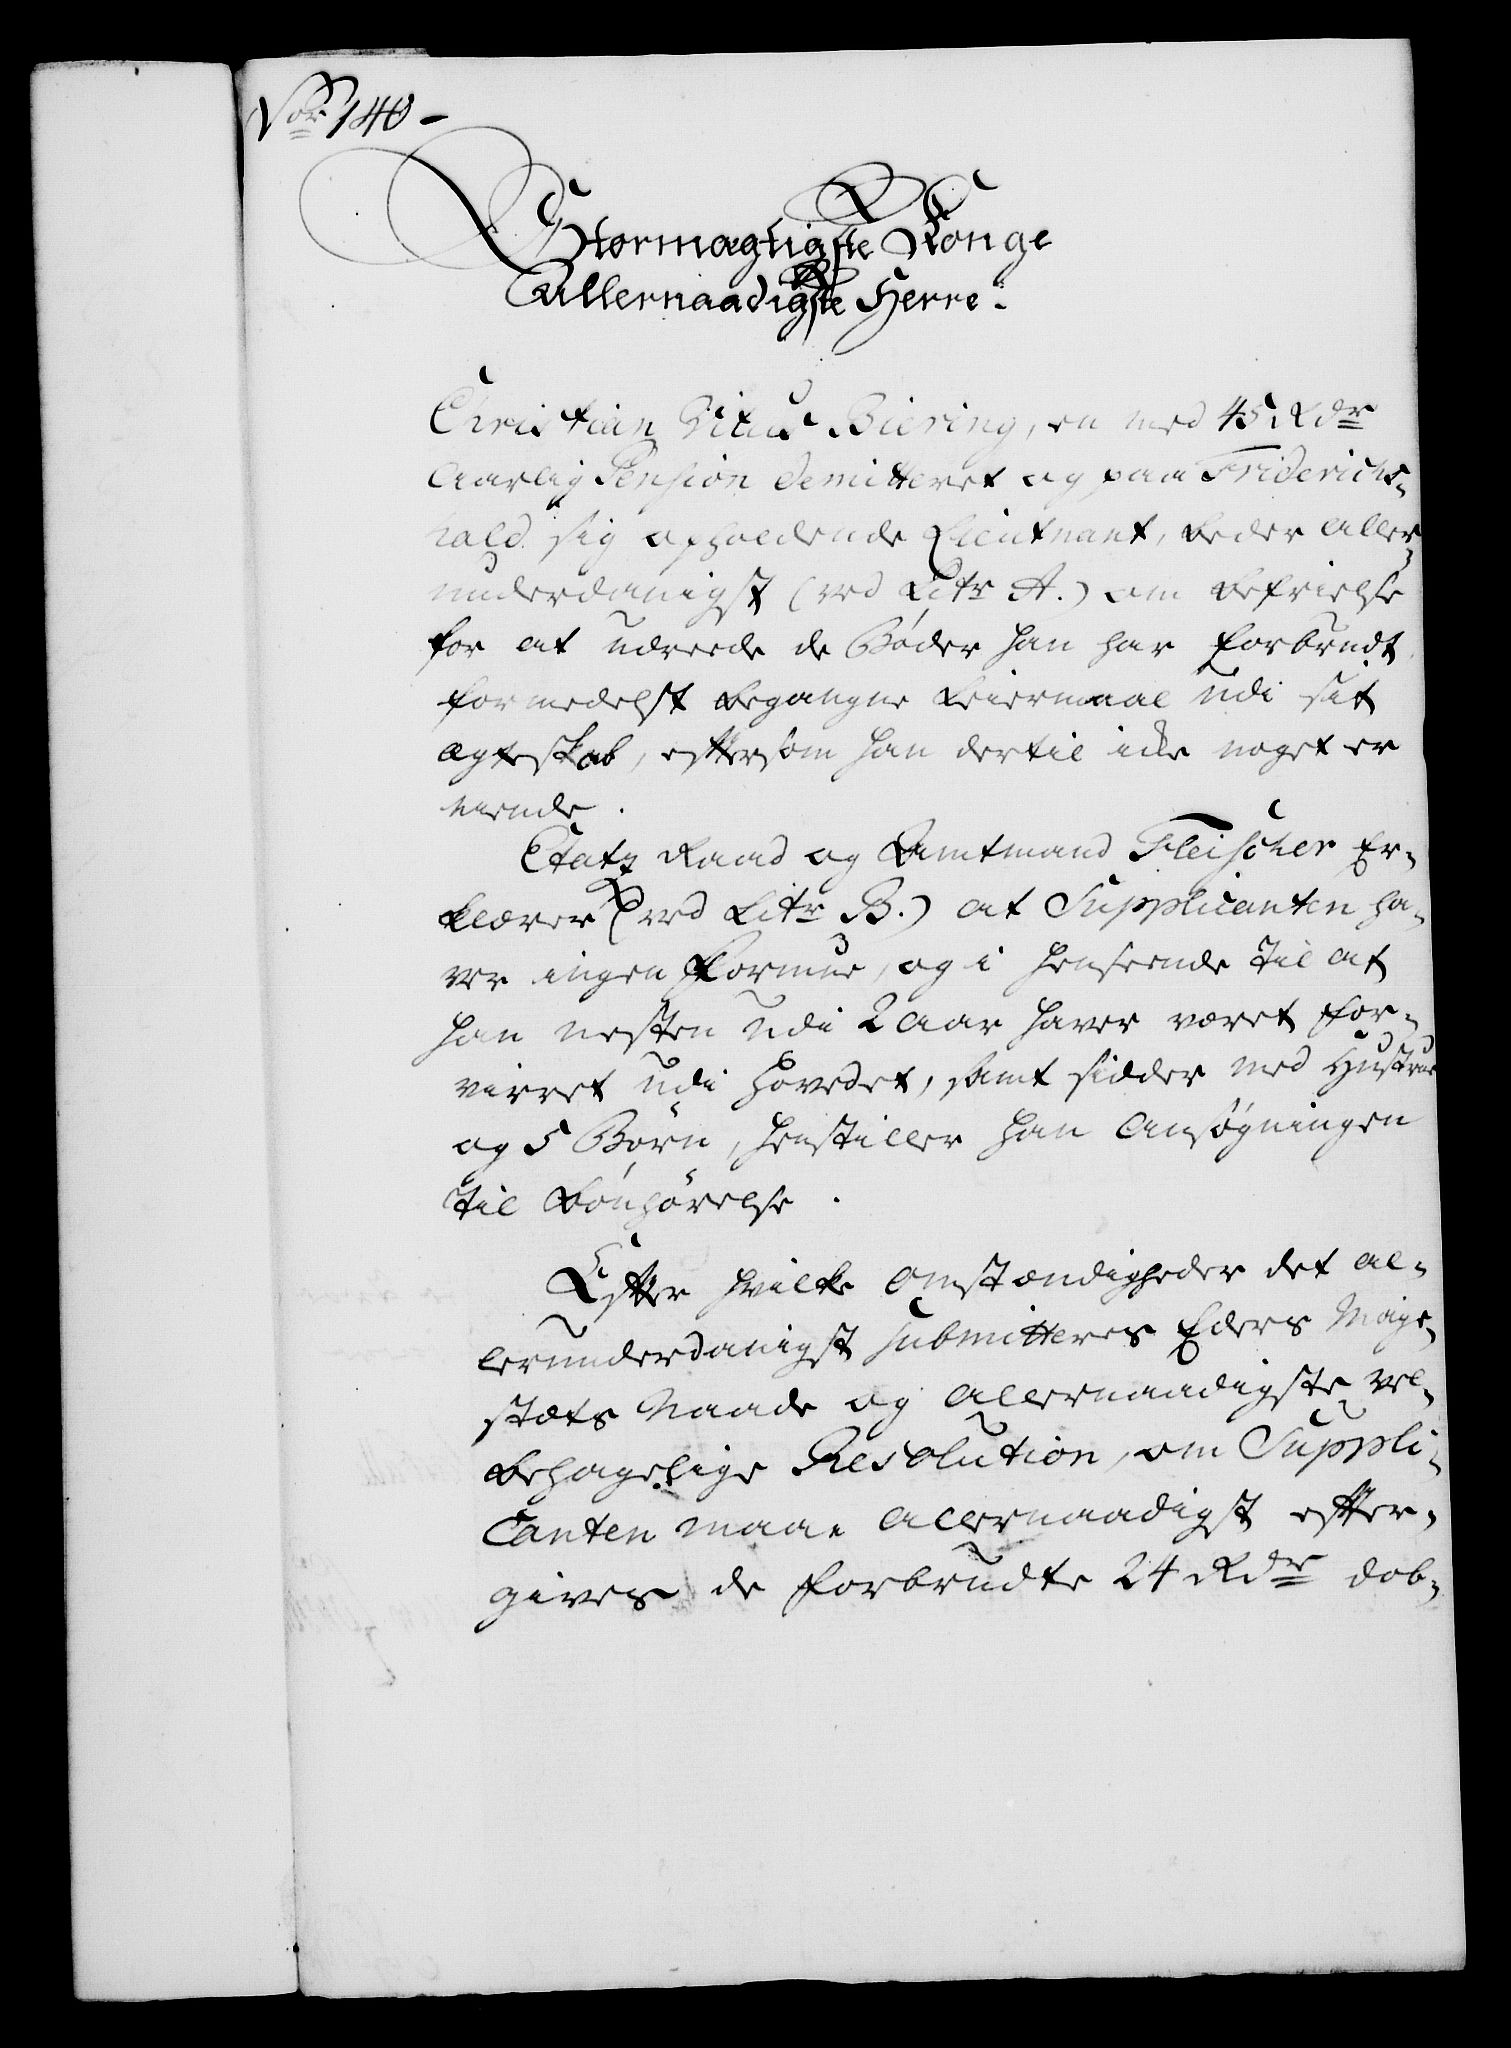 No: 140 -
Stormægtigste Konge
Allernaadigste Herre.
Christian Vitus Biering, en med 45 Rdr
Aarlig Pension demitteret og paa Friderichs-
hald sig opholdende Lieutnant, beder Aller
underdanigst (ved Litr A.) om befrielse
for at udreede de Bøder han har forbrudt
formedelst begangne Leiermaal udi sit
Ægteskab, eftersom han dertil icke noget er
eiende.
Etatz Raad og Amtmand Fleischer Er-
klærer (ved Litr B.) at Supplicanten ha-
ver ingen Formue, og i henseende til at
han nesten udi 2 aar haver været for-
virret udi hovedet, samt sidder med Hustrue
og 5 Børn, henstiller han Ansøgningen
til Bønhørelse.
Efter hvilke Omstændigheder det al-
lerunderdanigst submitteres Eders Maje-
stæts Naade og allernaadigste vel-
behagelige Resolution, om Suppli-
canten maae allernaadigst efter-
gives de forbrudte 24 Rdr dob-